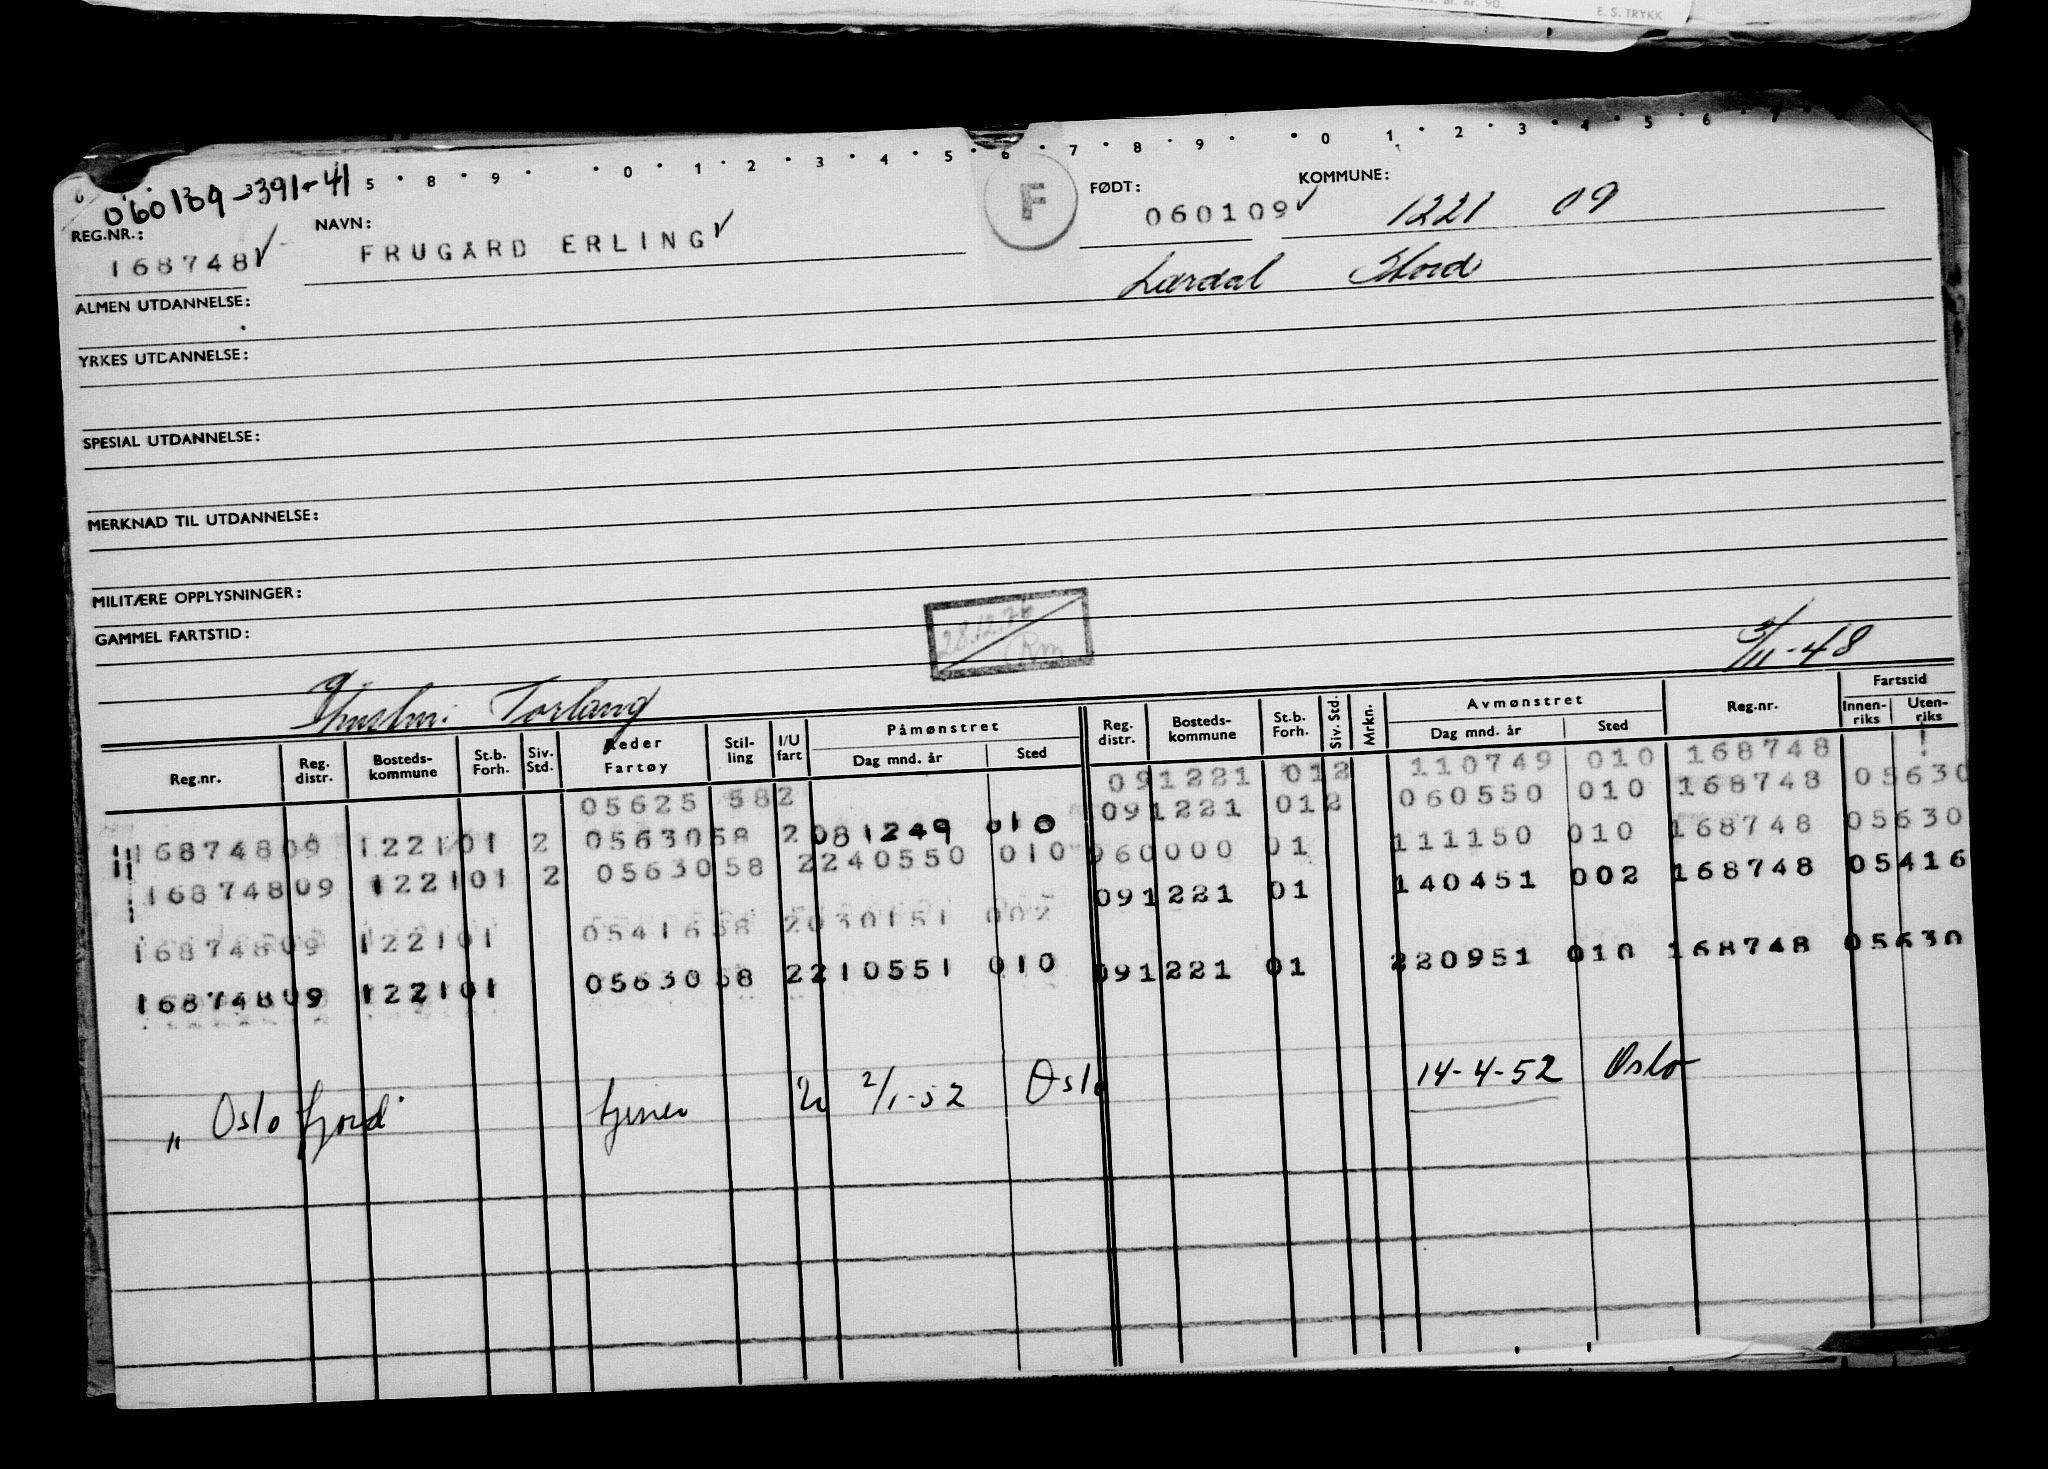 E. S. TRYKK
0 1 2 3 4 5 6 7 8 9 0 1 2 3 4 5 6 7
060139-3391-41
REG.NR.: 168748 NAVN: FRUGARD ERLING F FØDT: 060109 KOMMUNE: 1221 09
Lærdal Stord
ALMEN UTDANNELSE:
YRKES UTDANNELSE:
SPESIAL UTDANNELSE:
MERKNAD TIL UTDANNELSE:
MILITÆRE OPPLYSNINGER:
GAMMEL FARTSTID:
28.12.76 Rm
3/11-48
Torlaug
Reg.nr. Reg. distr. Bosteds-kommune St.b. Forh. Siv. Std. Reder Fartøy Stil-ling I/U fart Påmønstret Dag mnd. år Sted Reg. distr. Bosteds-kommune St.b. Forh. Siv. Std. Mrkn. Avmønstret Dag mnd. år Sted Reg.nr. Fartstid Innen-riks Uten-riks
05625 582 091221 012 110749 010 168748
16874809 122101 2 0563058 2081249 010 091221 012 060550 010 168748 05630
16874809 122101 2 0563058 2240550 010 060000 01 111150 010 168748 05630
16874809 122101 0541658 2030151 002 091221 01 140451 002 168748 05416
16874809 122101 0563058 2210551 010 091221 01 220951 010 168748 05630
" Oslofjord tjener U 2/1-52 Oslo 14-4-52 Oslo